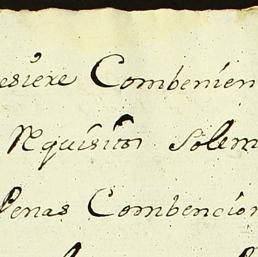 esiere Combenien
Requisitos Solem
Penas Combencion